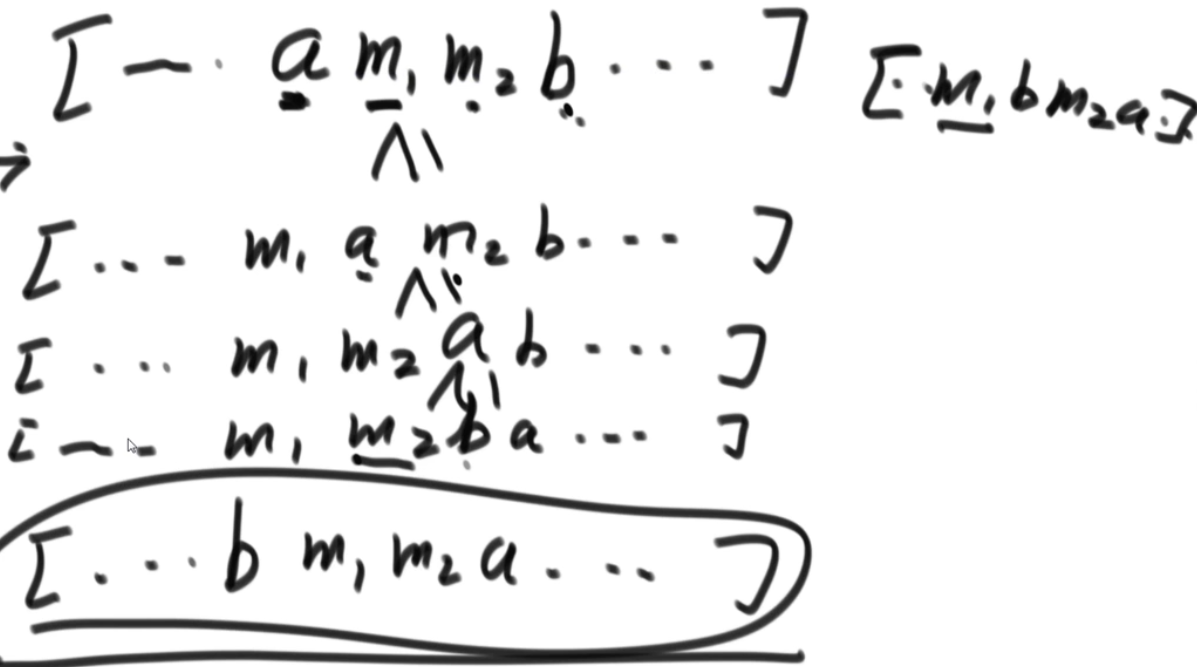 [ — · a m₁ m₂ b · · · ]
[ · · m₁ b m₂ a · ]
→
[ · · · m₁ a m₂ b · · · ]
[ · · · m₁ m₂ a b · · · ]
[ — · · m₁ m₂ b a · · · ]
[ · · · b m₁ m₂ a · · · ]